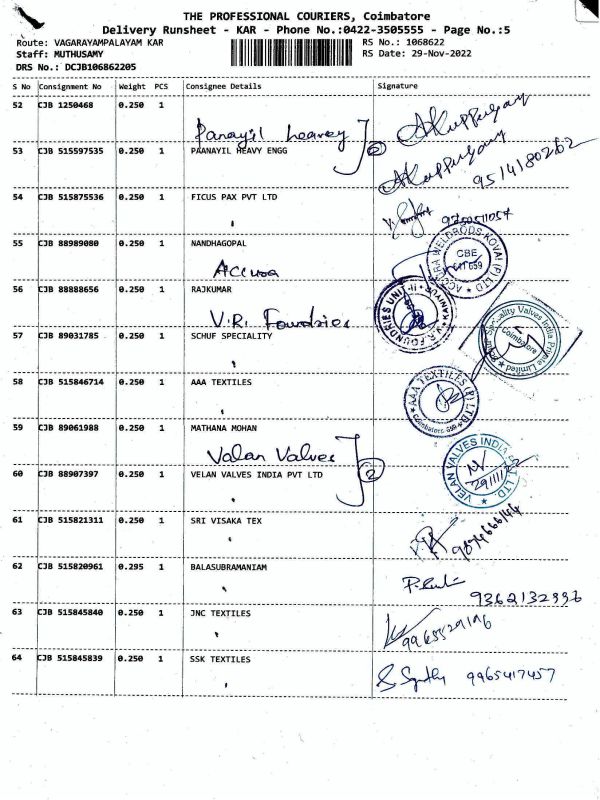 THE PROFESSIONAL COURIERS, Coimbatore
Delivery Runsheet - KAR - Phone No.:0422-3505555 - Page No.:5
Route: VAGARAYAMPALAYAM KAR RS No.: 1068622
Staff: MUTHUSAMY RS Date: 29-Nov-2022
DRS No.: DCJB106862205
S No Consignment No Weight PCS Consignee Details Signature
52 CJB 1250468 0.250 1
Panayil Heavey
53 CJB 515597535 0.250 1 PAANAYIL HEAVY ENGG 2
9514180262
54 CJB 515875536 0.250 1 FICUS PAX PVT LTD
55 CJB 88989080 0.250 1 NANDHAGOPAL
Accura
ACCURA WELDRODS KOVAI (P) LTD
CBE
641 659
56 CJB 88888656 0.250 1 RAJKUMAR
V.R. Foundries
V.R. FOUNDRIES UNIT-II
57 CJB 89031785 0.250 1 SCHUF SPECIALITY
Speciality Valves India Private Limited
Coimbatore
58 CJB 515846714 0.250 1 AAA TEXTILES
AAA TEXTILES (P) LTD
Coimbatore
59 CJB 89061988 0.250 1 MATHANA MOHAN
Valan Valves
60 CJB 88907397 0.250 1 VELAN VALVES INDIA PVT LTD 2
VELAN VALVES INDIA PVT. LTD.
29/11/22
61 CJB 515821311 0.250 1 SRI VISAKA TEX
9874666144
62 CJB 515820961 0.295 1 BALASUBRAMANIAM
9362132996
63 CJB 515845840 0.250 1 JNC TEXTILES
9965529196
64 CJB 515845839 0.250 1 SSK TEXTILES
9965417457